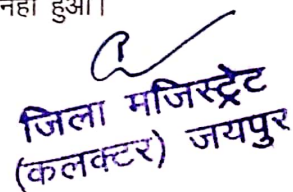 नहीं हुआ।
जिला मजिस्ट्रेट
(कलक्टर) जयपुर